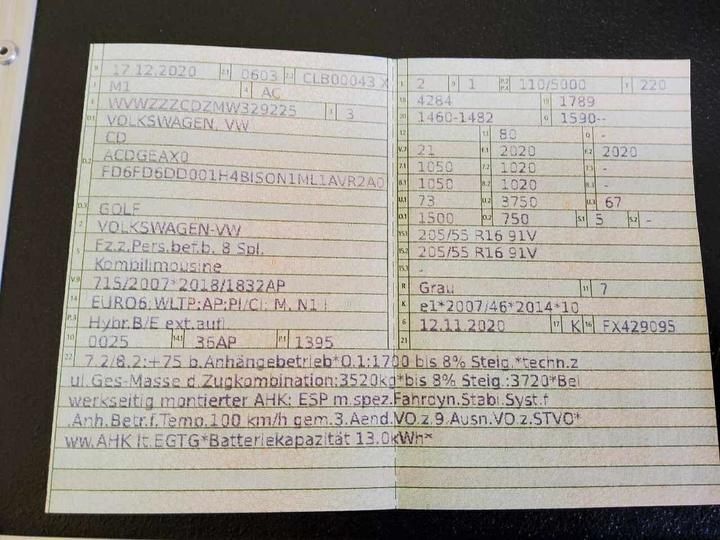 B 17.12.2020 2.1 0603 2.2 CLB00043 X
J M1 4 AC
E WVWZZZCDZMW329225 3 3
D.1 VOLKSWAGEN, VW
CD
D.2 ACDGEAX0
FD6FD6DD001H4BISON1ML1AVR2A0
D.3 GOLF
2 VOLKSWAGEN-VW
5 Fz.z.Pers.bef.b. 8 Spl.
Kombilimousine
V.9 715/2007*2018/1832AP
14 EURO6;WLTP;AP;PI/CI; M, N1 I
P.3 Hybr.B/E ext.aufl.
10 0025 14.1 36AP P.1 1395
L 2 9 1 P.2 P.4 110/5000 T 220
18 4284 19 1789
20 1460-1482 G 1590--
12 - 13 80 Q -
V.7 21 F.1 2020 F.2 2020
7.1 1050 7.2 1020 7.3 -
8.1 1050 8.2 1020 8.3 -
U.1 73 U.2 3750 U.3 67
O.1 1500 O.2 750 S.1 5 S.2 -
15.1 205/55 R16 91V
15.2 205/55 R16 91V
15.3 -
R Grau 11 7
K e1*2007/46*2014*10
6 12.11.2020 17 K 16 FX429095
21
22 7.2/8.2:+75 b.Anhängebetrieb*O.1:1700 bis 8% Steig.*techn.z
ul.Ges-Masse d.Zugkombination:3520kg*bis 8% Steig.:3720*Bei
werkseitig montierter AHK: ESP m.spez.Fahrdyn.Stabi.Syst.f
.Anh.Betr.f.Temp.100 km/h gem.3.Aend.VO.z.9.Ausn.VO.z.STVO*
ww.AHK lt.EGTG*Batteriekapazität 13.0kWh*